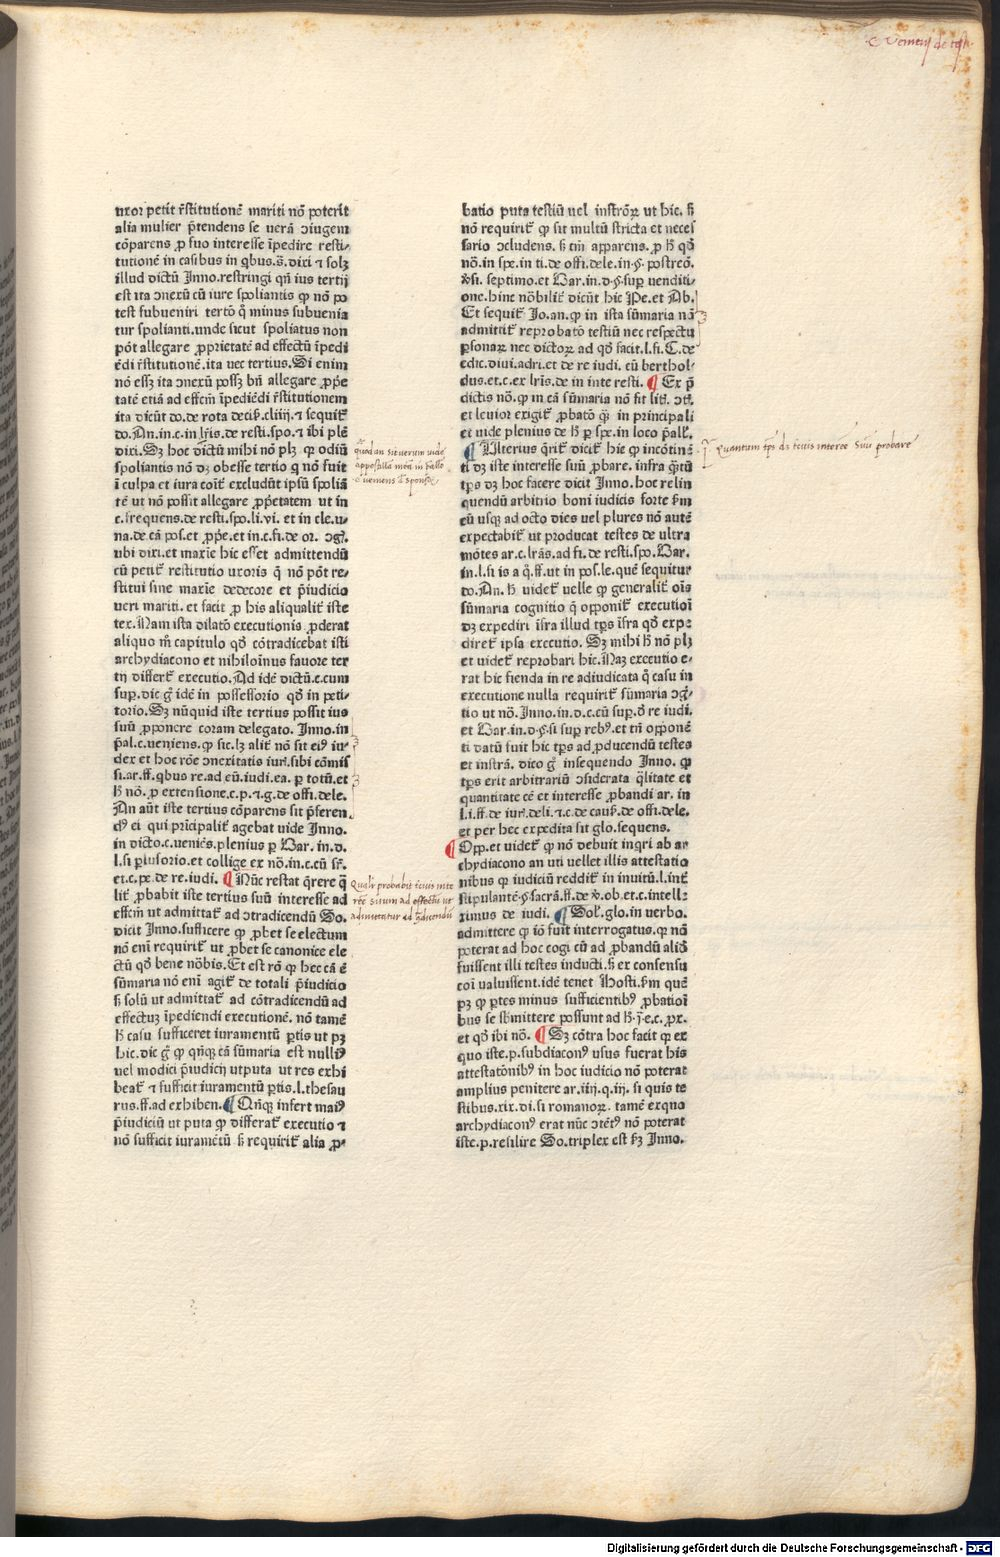 c veniens de test.
uxor petit r̄stitutionē mariti nō poterit
alia mulier p̄tendens se uerā ↄiugem
cōparens ꝓ suo interesse īpedire resti⸗
tutionē in casibus in qbus.s̄.dixi ⁊ solꝫ
illud dictū Inno.restringi qn̄ ius tertij
est ita ↄnexū cū iure spoliantis ꝙ nō po
test subueniri tertō q̄ minus subuenia
tur spolianti.unde sicut spoliatus non
pōt allegare ꝓprietatē ad effectū īpedi
ēdi r̄stitutionē.ita uec tertius.Si enim
nō essꝫ ita ↄnexū possꝫ bn̄ allegare ꝓp̄e
tatē etiā ad effcm̄ īpediēdi r̄stitutionem
ita dicūt do.de rota decis̄.cliiij.⁊ sequit̄
do.An.in.c.in lr̄is.de resti.spo.⁊ ibi plē
dixi.Sꝫ hoc dictū mihi nō plꝫ qꝛ odiū
spoliantis nō dꝫ obesse tertio q nō fuit
ī culpa et iura coit̄ excludūt ipsū spoliā
tē ut nō possit allegare ꝓp̄etatem ut in
c.frequens.de resti.spo.li.vi. et in cle.u⸗
na.de cā pos.et ꝓp̄e.et in.c.fi.de or. ↄḡ.
ubi dixi.et maxie hic esset admittendū
cū petit̄ restitutio uxoris q̄ nō pōt re⸗
stitui sine maxīe dedecore et p̄iudicio
ueri mariti. et facit ꝓ his aliqualit̄ iste
tex.Nam ista dilatō executionis ꝓderat
aliquo m̄ capitulo qḋ cōtradicebat isti
archydiacono et nihiloīnus fauore ter
tij differt̄ executio.Ad idē dictū.c.cum
suꝑ.dic ḡ idē in possessorio qḋ in peti⸗
torio.Sꝫ nūquid iste tertius possit ius
suū ꝓponere coram delegato. Inno.in
p̄al.c.ueniens.ꝙ sic.lꝫ alit̄ nō sit eiꝰ iu⸗
dex et hoc rōe ↄnexitatis iur̄.sibi cōmis
si.ar.ff.qbus re.ad eū.iudi.ea. ꝑ totū.et
h̄ nō.ꝓ extensione.c.p.⁊.g.de offi.dele.
An aūt iste tertius cōparens sit p̄feren
dꝰ ei qui prīcipalit̄ agebat uide Inno.
in dicto.c.ueniēs.plenius ꝑ Bar. in.d.
l.si ꝑlusorio.et collige ex nō.in.c.cū sr̄.
et.c.pe.de re.iudi. ¶ Nūc restat q̄rere q̄
lit̄ ꝓbabit iste tertius suū interesse ad
effcm̄ ut admittat̄ ad ↄtradicendū So.
dicit Inno.sufficere ꝙ ꝓbet se electum
nō enī requirit̄ ut ꝓbet se canonice ele
ctū qḋ bene nōbis.Et est rō qꝛ hec cā ē
sūmaria nō enī agit̄ de totali p̄iudicio
s̄ solū ut admittat̄ ad cōtradicendū ad
effectuꝫ īpediendi executionē. nō tamē
h̄ casu sufficeret iuramentū ꝑtis ut pꝫ
hic.dic ḡ ꝙ qn̄qꝫ cā sūmaria est nulliꝰ
uel modici p̄iudicij utputa ut res exhi
beat̄ ⁊ sufficit iuramentū ꝑtis.l.thesau
rus.ff.ad exhiben.¶ Qn̄qꝫ infert maiꝰ
p̄iudiciū ut puta ꝙ differat̄ executio ⁊
nō sufficit iuramētū s̄ requirit̄ alia ꝓ⸗
Qualr̄ probabit tercius inte
resse suum ad effectū ut
admittatur ad ↄ̄dicendū
batio puta testiū uel instrōꝝ ut hic. s̄
nō requirit̄ ꝙ sit multū stricta et neces
sario ↄcludens. s̄ tm̄ apparens. ꝓ h̄ qḋ
nō.in spe.in ti.de offi.dele.in.§.postreō.
ꝟsi. septimo.et Bar.in.d.§.suꝑ uenditi⸗
one.hinc nōbilit̄ dicūt hic Pe.et Ab.
Et sequit̄ Jo.an.ꝙ in ista sūmaria nō
admittit̄ reprobatō testiū nec respectu
ꝑsonaꝝ nec dictoꝝ ad qḋ facit.l.fi.C.de
edic.diui.adri.et de re iudi. cū berthol⸗
dus.et.c.ex lr̄is.de in inte resti. ¶ Ex p̄
dictis nō.ꝙ in cā sūmaria nō fit lit̄. ↄt̄.
et leuior exigit̄ ꝓbatō q̄ in principali
et uide plenius de h̄ ꝑ spe.in loco p̄all̄.
¶ Ulterius q̄rit̄ dicit̄ hic ꝙ incōtinē
ti dꝫ iste interesse suū ꝓbare. infra q̄tū
tp̄s dꝫ hoc facere dicit Inno.hoc relin
quendū arbitrio boni iudicis forte s̄m
eū usqꝫ ad octo dies uel plures nō autē
expectabit̄ ut producat testes de ultra
mōtes ar.c.lr̄as.ad fi.de resti.spo.Bar.
in.l.si is a q̄.ff.ut in pos.le.quē sequitur
do.An. h̄ uidet̄ uelle ꝙ generalit̄ oīs
sūmaria cognitio q̄ opponit̄ executiōi
dꝫ expediri īfra illud tp̄s īfra qḋ expe⸗
diret̄ ipsa executio. Sꝫ mihi h̄ nō plꝫ
et uidet̄ reprobari hic.Naꝫ executio e⸗
rat hic fienda in re adiudicata q̄ casu in
executione nulla requirit̄ sūmaria ↄḡ⸗
tio ut nō. Inno.in.d.c.cū suꝑ.d̄ re iudi.
et Bar.in.d.§.si suꝑ rebꝰ.et tn̄ opponē
ti datū fuit hic tp̄s ad ꝓducendū testes
et instrā. dico ḡ insequendo Inno. ꝙ
tp̄s erit arbitrariū ↄsiderata q̄litate et
quantitate cē et interesse ꝓbandi ar. in
l.i.ff.de iur̄.deli.⁊.c.de caus̄.de offi.dele.
et per hec expedita sit glo.sequens.
¶ Opp.et uidet̄ ꝙ nō debuit inqri ab ar
chydiacono an uti uellet illis attestatio
nibus qꝛ iudiciū reddit̄ in inuitū.l.int̄
stipulantē.§.sacrā.ff.de ꝟ.ob.et.c.intelle
ximus de iudi. ¶ Sol̄.glo.in uerbo.
admittere ꝙ iō fuit interrogatus.qꝛ nō
poterat ad hoc cogi cū ad ꝓbandū aliḋ
fuissent illi testes inducti.s̄ ex consensu
coī ualuissent.idē tenet Hosti.s̄m quē
pꝫ ꝙ ꝑtes minus sufficientibꝰ ꝓbatiōi
bus se sb̄mittere possunt ad h̄.j.e.c.ꝓx.
et qḋ ibi nō. ¶ Sꝫ cōtra hoc facit qꝛ ex
quo iste.p.subdiaconꝰ usus fuerat his
attestatōnibꝰ in hoc iudicio nō poterat
amplius penitere ar.iiij.q.iij. si quis te
stibus.xix.di.si romanoꝝ. tamē exquo
archydiaconꝰ erat nūc ↄtētꝰ nō poterat
iste.p.resilire So.triplex est s̄ꝫ Inno.
Quantum tp̄s dꝫ tercius interēe suū probare